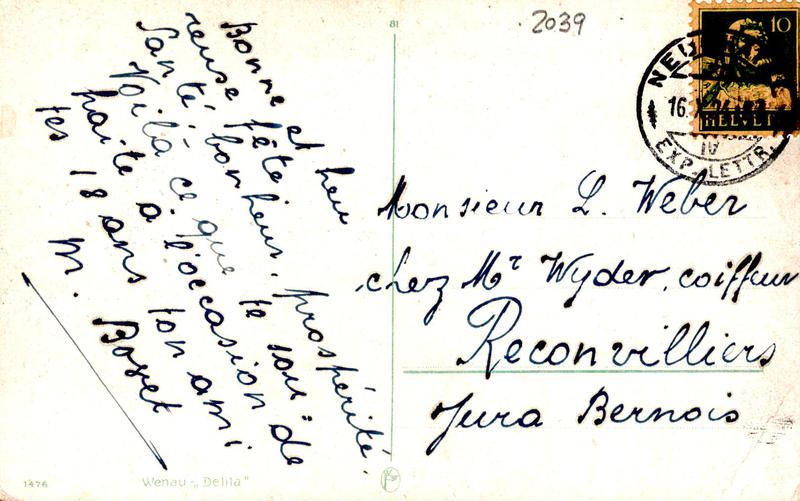 81
2039
10
HELVET
16.
IV
EXP. LETTR.
Bonne et heu
reuse fête,
Santé, bonheur, prospérité.
Voilà ce que te sou=
haite à l'occasion de
tes 18 ans ton ami
M. Bovet
Monsieur L. Weber
chez Mr Wyder, coiffeur
Reconvilliers
Jura Bernois
1476
Wenau-„Delila"